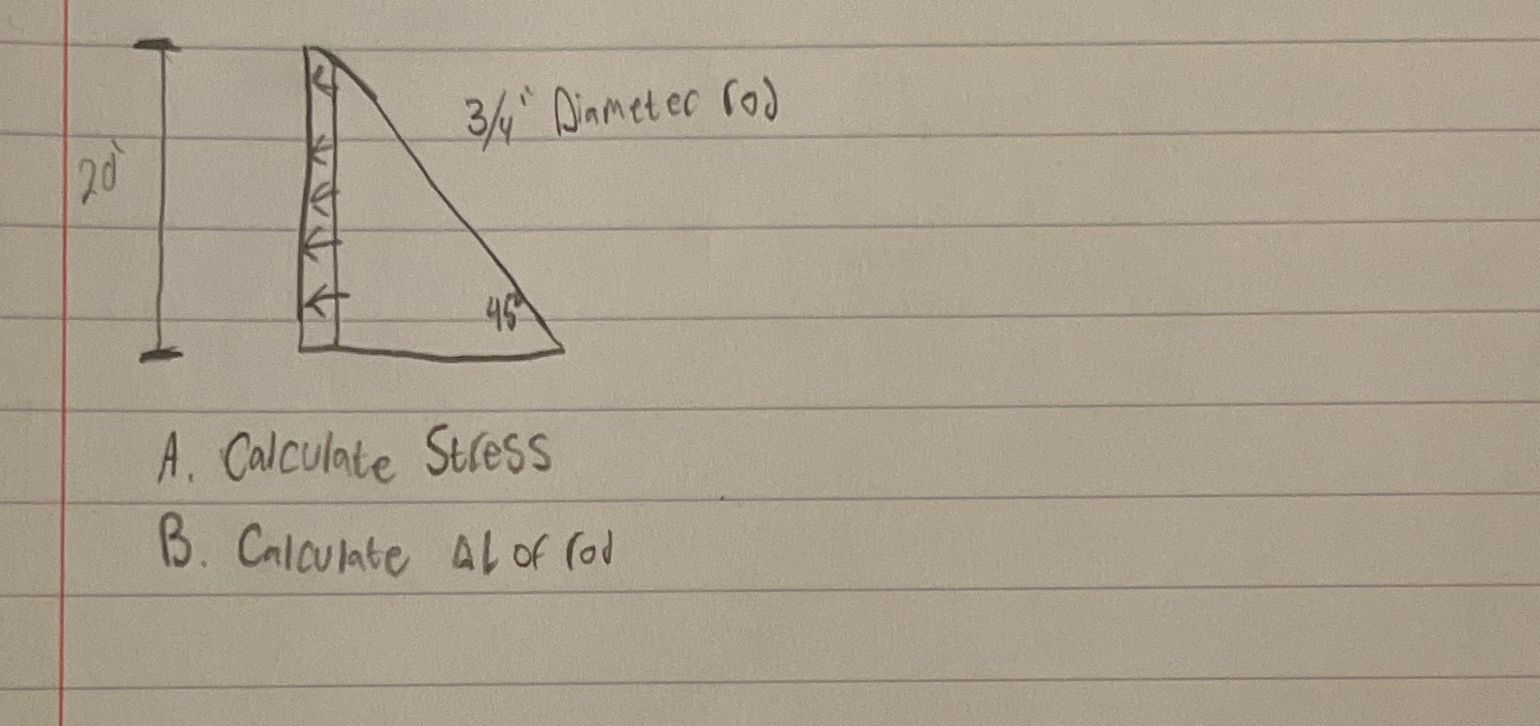 3/4" Diameter rod
20'
45°
A. Calculate Stress
B. Calculate ΔL of rod